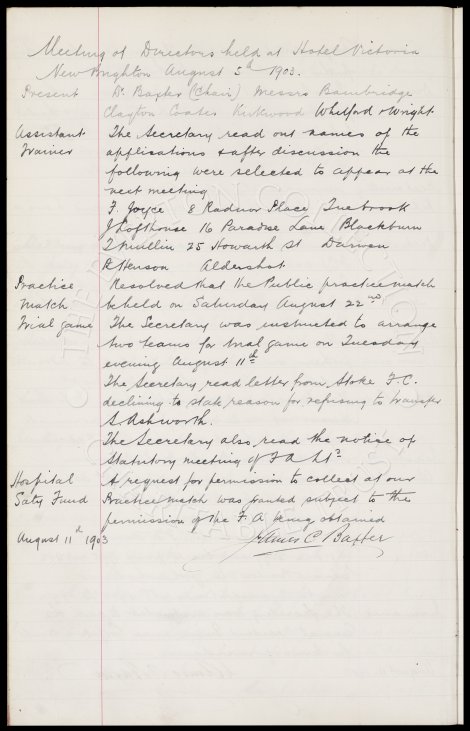 Meeting of Directors held at Hotel Victoria
New Brighton August 5th 1903.
Present Dr. Baxter (Chair) Messrs Bainbridge
Clayton Coates Kirkwood Whitford & Wright
Assistant The Secretary read out names of the
Trainer applications & after discussion the
following were selected to appear at the
next meeting
F. Joyce 8 Radnor Place Tuebrook
J Lofthouse 16 Paradise Lane Blackburn
T Mullin 25 Howarth St Darwen
Aldershot
Practice Resolved that the Public practice match
Match be held on Saturday August 22nd
Trial game The Secretary was instructed to arrange
two teams for trial game on Tuesday
evening August 11th
The Secretary read letter from Stoke F.C.
declining to state reason for refusing to transfer
S. Ashworth.
The Secretary also read the notice of
Statutory meeting of F A Ltd
Hospital A request for permission to collect at our
Saty Fund Practice match was granted subject to the
permission of the F.A. being obtained
August 11th 1903 James C Baxter